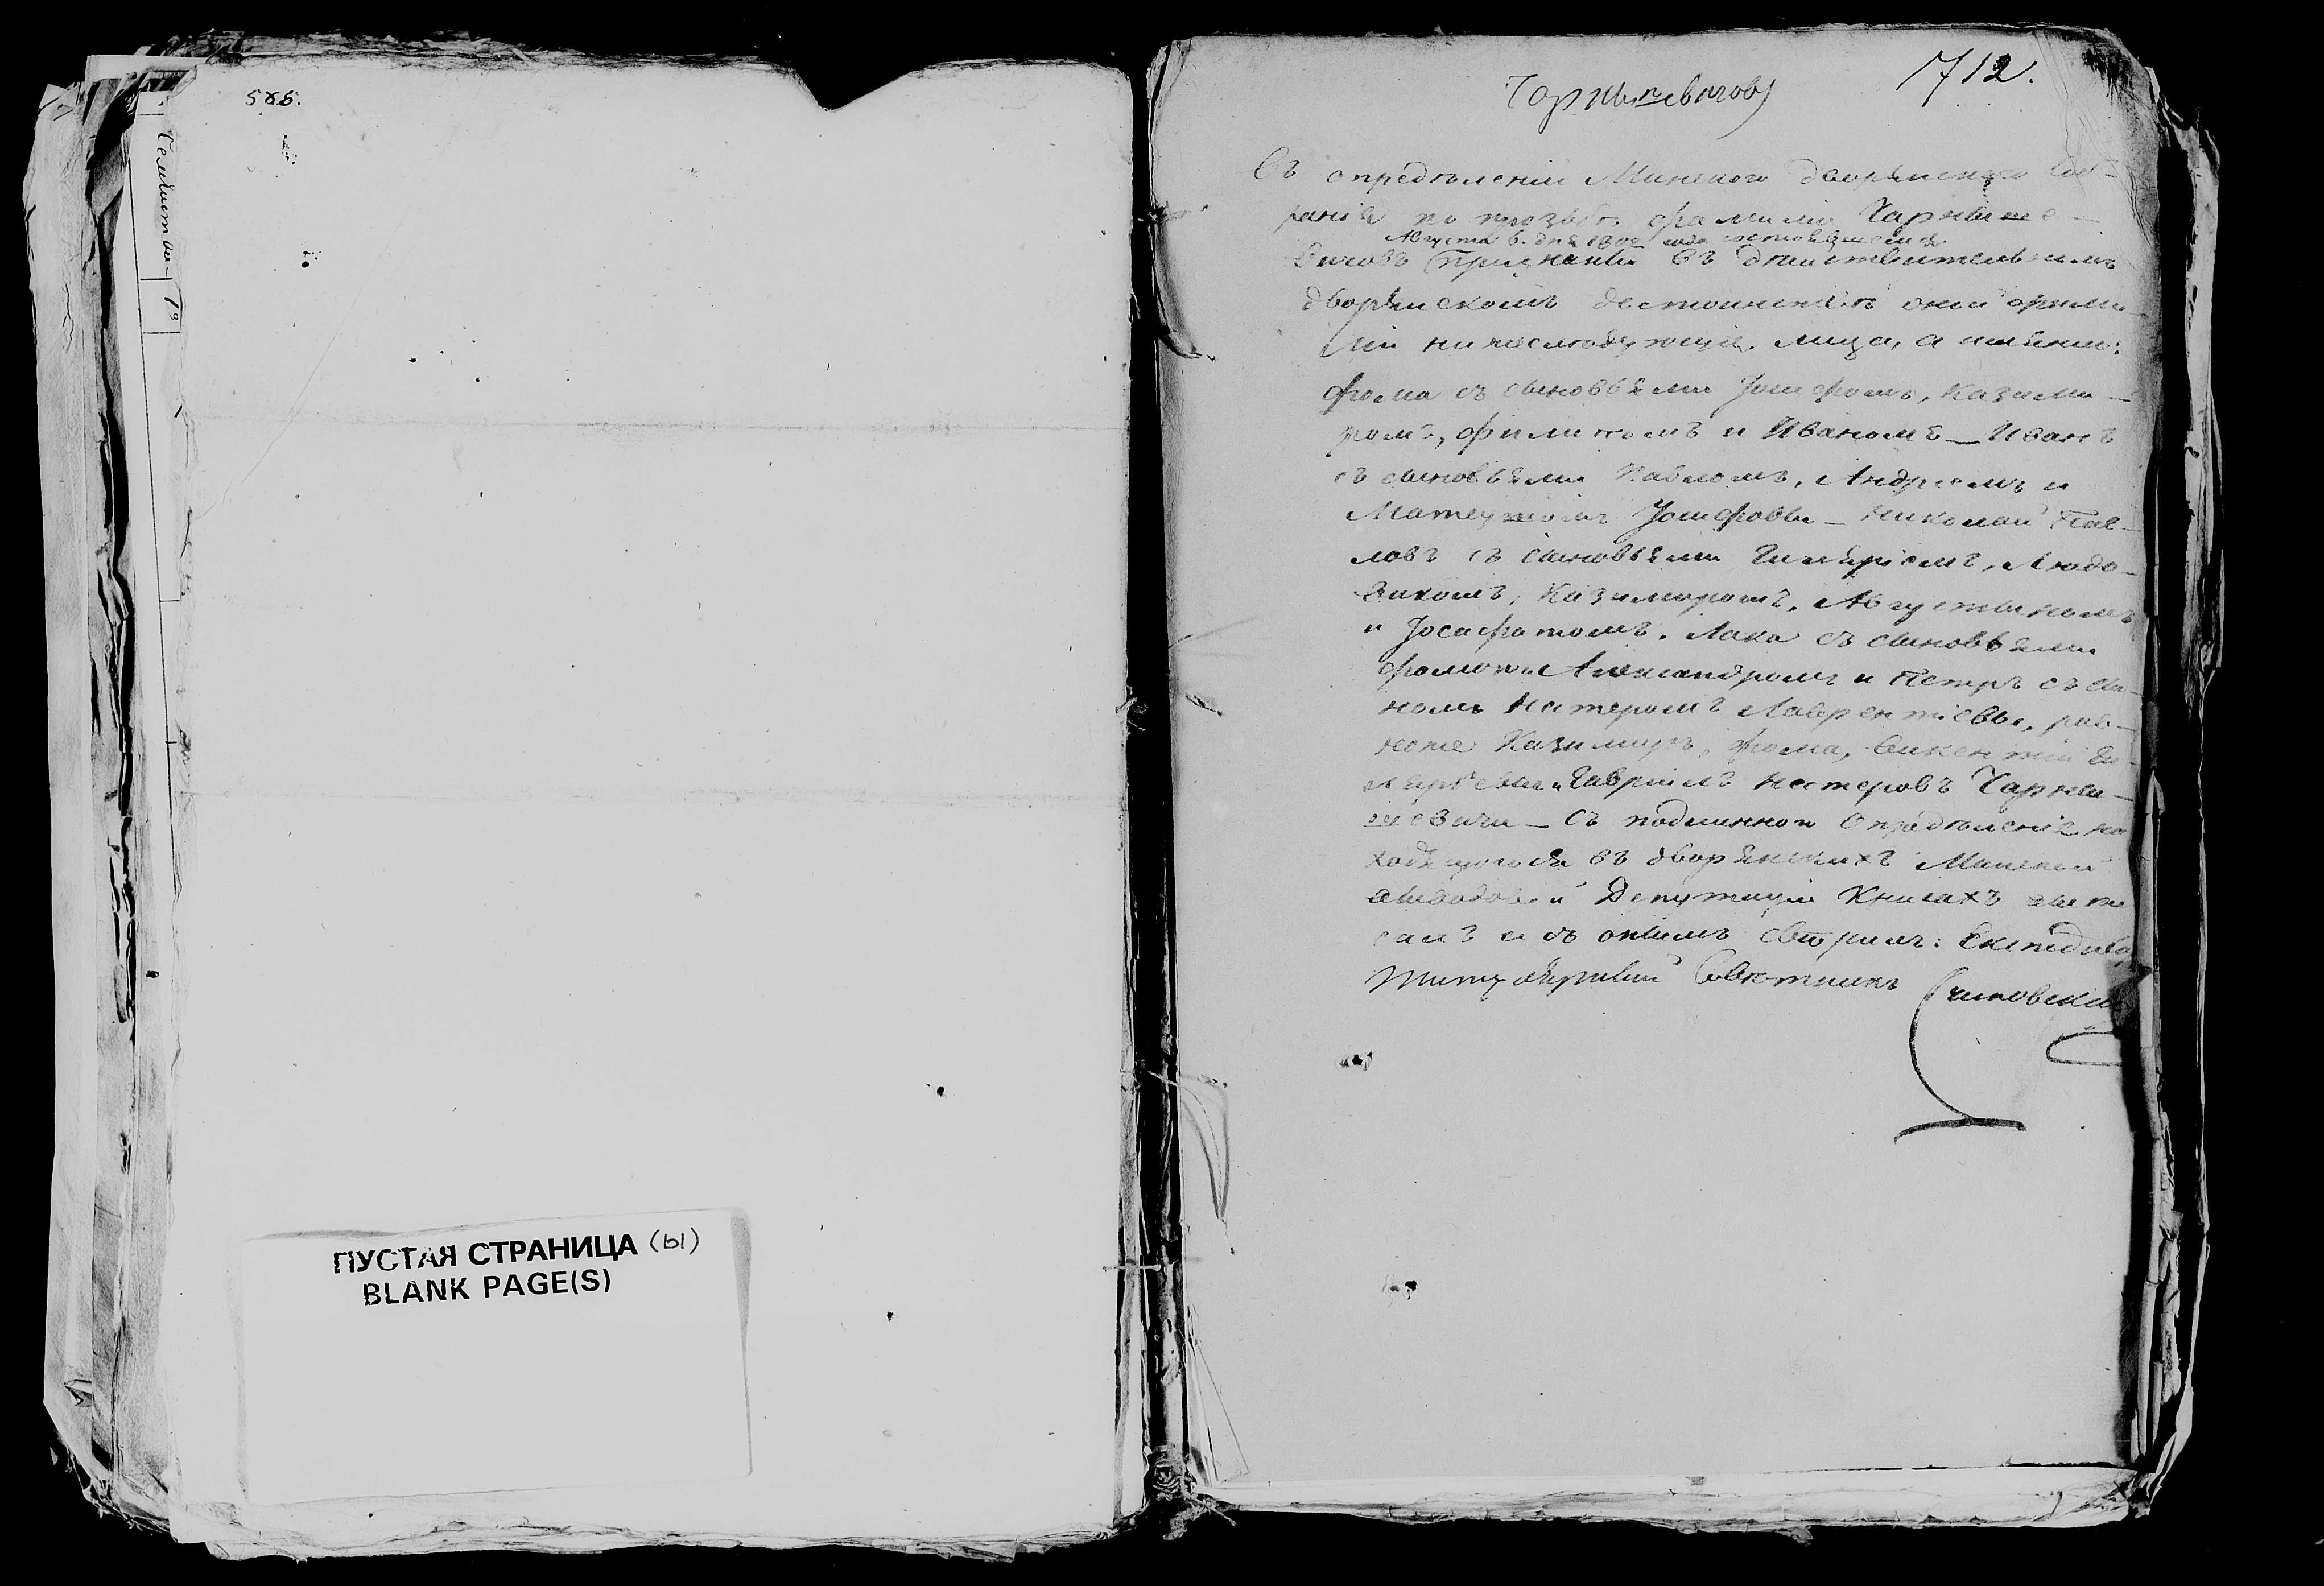 585.
ПУСТАЯ СТРАНИЦА (ы)
BLANK PAGE(S)
712.
Чарнышевичовъ
Въ опредѣленіи Минского дворянского Соб-
ранія по прозьбѣ фамиліи Чарныше-
Августа 6. дня 1802 года состоявшемся
вичовъ признаны въ дѣйствительномъ
дворянскомъ достоинствѣ оной фами-
ліи нижеслѣдующіе лица, а имянно:
Фома съ сыновьями Іосифомъ, Казими-
ромъ, Филипомъ и Иваномъ — Иванъ
съ сыновьями Павломъ, Андреемъ и
Матеушомъ Іосифовы — Николай Пав-
ловъ съ сыновьями Гиляріемъ, Людо-
викомъ, Казимиромъ, Августыномъ
и Іосафатомъ. Лука съ сыновьями
Фомою и Александромъ и Петръ съ сы-
номъ Нестеромъ Лаврентіевы, рав-
ноже Казимиръ, Фома, Викентій Ги-
ляріевы и Гавріилъ Нестеровъ Чарны-
шевичи — Съ подлинного опредѣленія на-
ходящогося въ дворянскихъ Минской
Депутаціи Книгахъ
и съ онымъ свѣрилъ:
Титулярный Совѣтникъ